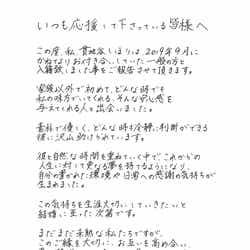 いつも応援して下さっている皆様へ
この度、私 貫地谷しほりは、2019年9月に
かねてよりお付き合いしていた一般の方と
入籍致しました事をご報告させて頂きます。
家族以外で初めて、どんな時でも
私の味方でいてくれる、そんな安心感を
与えてくれる人と出会いました。
普段は優しく、どんな時も冷静な判断ができる
彼に沢山助けられています。
彼と自然な時間を重ねていく中でこれからの
人生に対して更なる夢を持てるようになり、
自分の置かれた環境や日常への感謝の気持ちが
生まれました。
この気持ちを生涯大切にしていきたいと
結婚に至った次第です。
まだまだ未熟な私たちですが、
このご縁を大切に、お互いを高め合い、